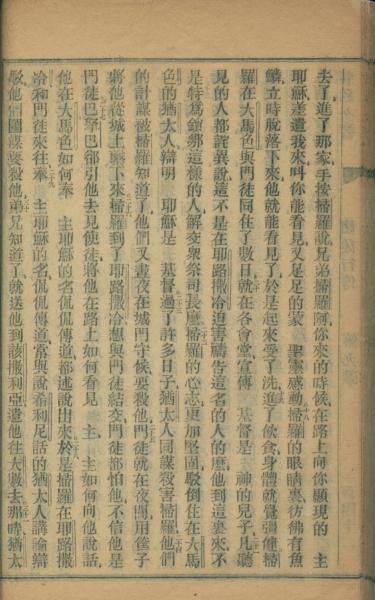 去了進了那家手按掃羅說兄弟掃羅阿你來的時候在路上向你顯現的 主
耶穌差遣我來叫你能看見又足足的蒙 聖靈感動掃羅的眼睛裏彷彿有魚
鱗立時脫落下來他就能看見了於是起來受了洗進了飲食身體就覺強健掃
羅在大馬色與門徒同住了數日就在各會堂宣傳 基督是 神的兒子凡聽
見的人都詫異說這不是在耶路撒冷迫害禱告這名的人的麼他到這裏來不
是特爲鎖綁這樣的人解交衆祭司長麼掃羅的心志更加堅固駁倒住在大馬
色的猶太人辯明 耶穌是 基督過了許多日子猶太人同謀殺害掃羅他們
的計謀被掃羅知道了他們又晝夜在城門守候要殺他門徒就在夜間用筐子
將他從城上縋下來掃羅到了耶路撒冷想與門徒結交門徒都怕他不信他是
門徒巴拏巴卻引他去見使徒將他在路上如何看見 主 主如何向他說話
他在大馬色如何奉 主耶穌的名侃侃傳道都述說出來於是掃羅在耶路撒
冷和門徒來往奉 主耶穌的名侃侃傳道常與說希利尼話的猶太人講論辯
駁他們圖謀要殺他弟兄知道了就送他到該撒利亞遣他往大數去那時猶太